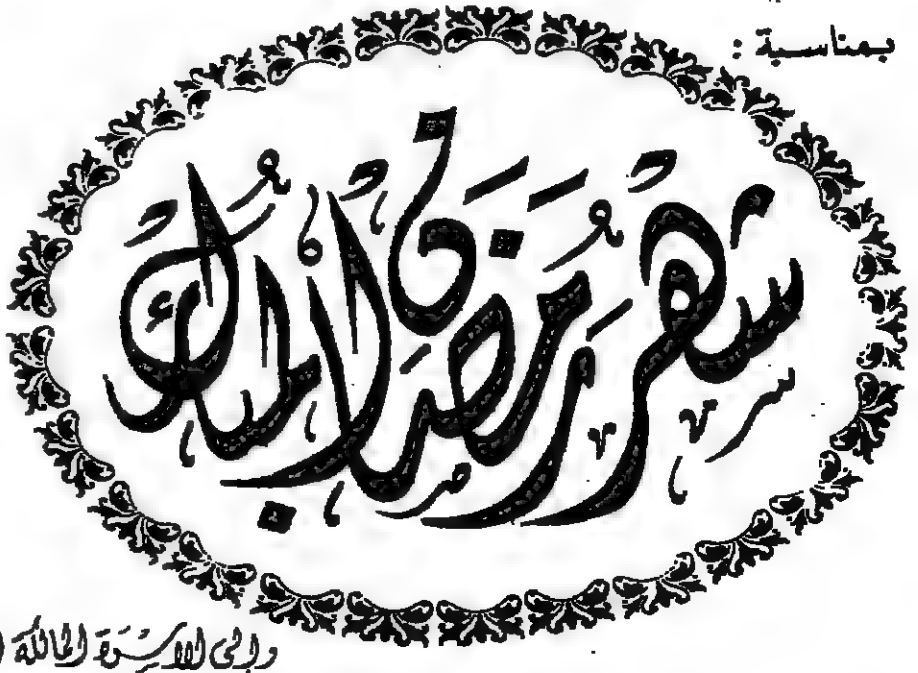 بمناسبة :
شهر رمضان المبارك
وإلى الأسرة المالكة